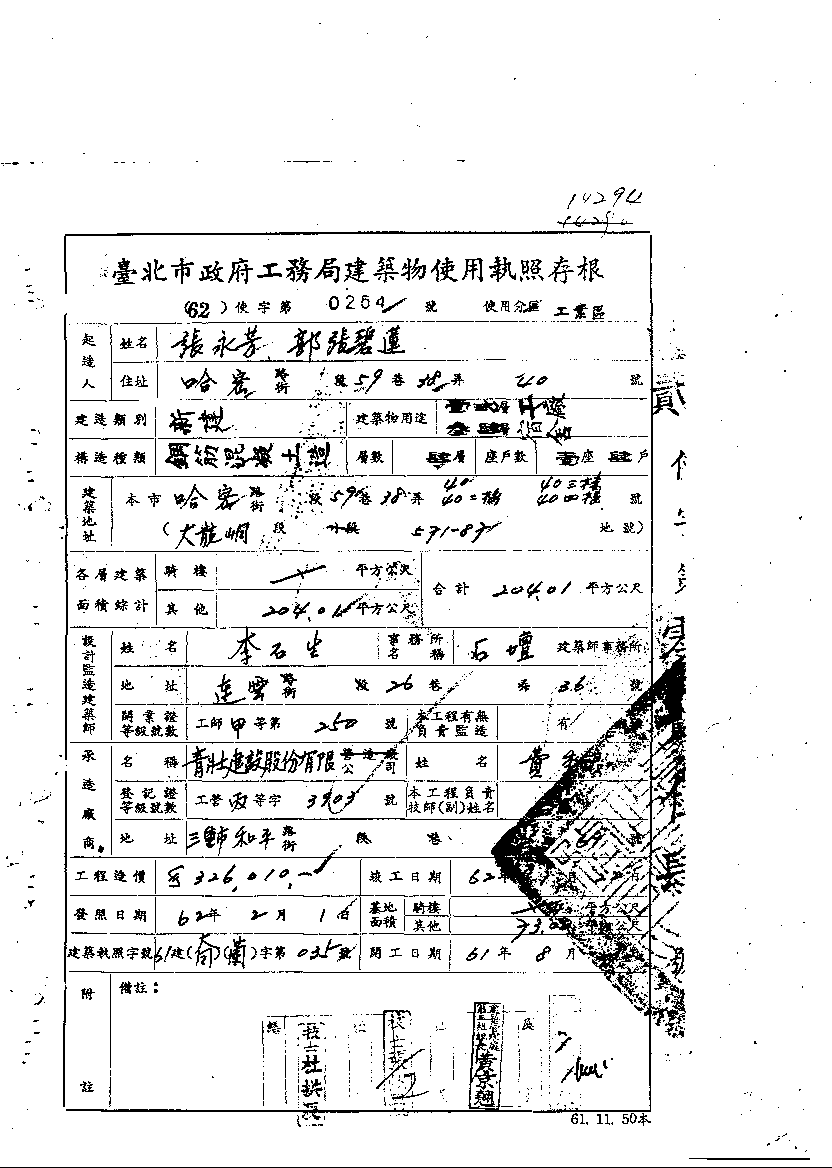 14294
臺北市政府工務局建築物使用執照存根
(62)使字第 0264 號 使用分區 工業區
起造人 姓名 張永芳、郭張碧蓮
住址 哈密 路街 段 59 巷 38 弄 40 號
建造類別 新建 建築物用途 宿舍
構造種類 鋼筋混凝土造 層數 肆層 座戶數 壹座 肆戶
建築地址 本市 哈密 路街 段 59 巷 38 弄 40 40二樓 40三樓 40四樓 號
(大龍峒 段 小段 571-87 地號)
各層建築面積綜計 騎樓 平方公尺 合計 204.01 平方公尺
其他 204.01 平方公尺
設計監造建築師 姓名 李石生 事務所名稱 石壇 建築師事務所
地址 連雲 路街 段 26 巷 弄 36 號
開業證等級號數 工師 甲 等第 250 號 本工程有無負責監造 有
承造廠商 名稱 青壯建設股份有限 營造廠公司 姓名 黃
登記證等級號數 工營 丙 等字 3903 號 本工程負責技師(副)姓名
地址 三重市和平 路街 段 巷 號
工程造價 326,010.- 竣工日期 62年 月 日
發照日期 62年 2月 1日 基地面積 騎樓 平方公尺
其他 平方公尺
建築執照字號 61建( )( )字第 035 號 開工日期 61年 8月
附註 備註：
技士 杜
黃景
61. 11. 50本